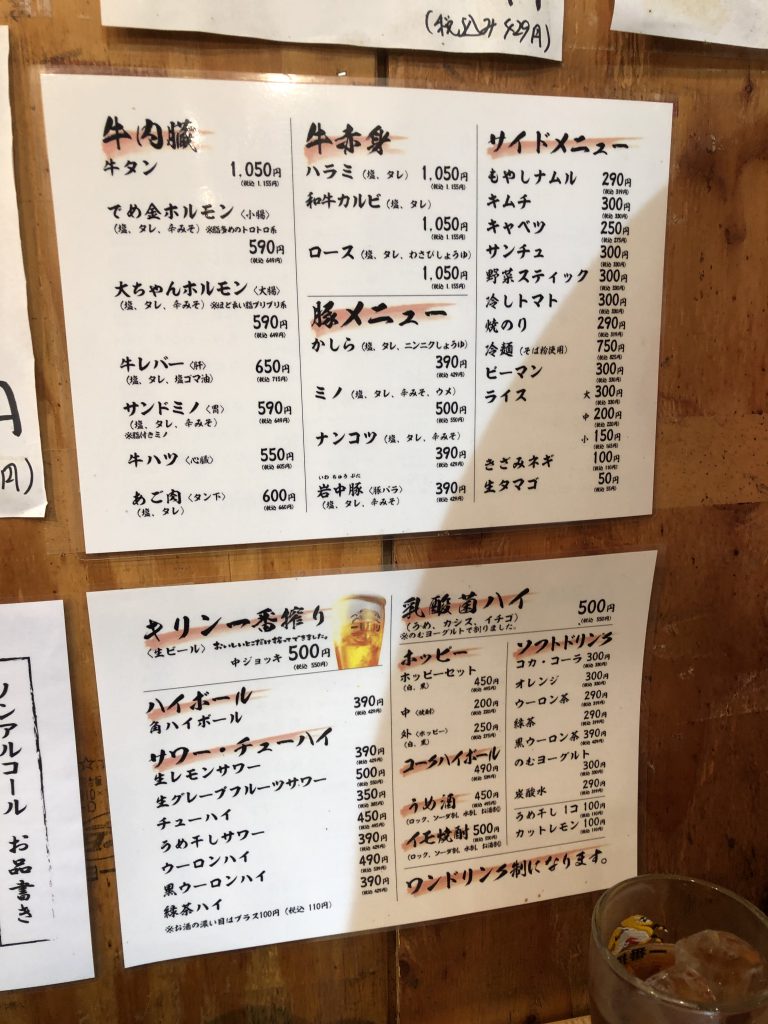 (税込み429円)
円
円)
牛内臓
牛タン 1,050円
(税込 1.155円)
でめ金ホルモン〈小腸〉
(塩、タレ、辛みそ) ※脂多めのトロトロ系
590円
(税込 649円)
大ちゃんホルモン〈大腸〉
(塩、タレ、辛みそ) ※ほど良い脂プリプリ系
590円
(税込 649円)
牛レバー〈肝〉 650円
(塩、タレ、塩ゴマ油) (税込 715円)
サンドミノ〈胃〉 590円
(塩、タレ、辛みそ) (税込 649円)
※脂付きミノ
牛ハツ〈心臓〉 550円
(税込 605円)
あご肉〈タン下〉 600円
(塩、タレ) (税込 660円)
牛赤身
ハラミ(塩、タレ) 1,050円
(税込 1.155円)
和牛カルビ(塩、タレ)
1,050円
(税込 1.155円)
ロース(塩、タレ、わさびしょうゆ)
1,050円
(税込 1.155円)
豚メニュー
かしら(塩、タレ、ニンニクしょうゆ)
390円
(税込 429円)
ミノ(塩、タレ、辛みそ、ウメ)
500円
(税込 550円)
ナンコツ(塩、タレ、辛みそ)
390円
(税込 429円)
いわ ちゅう ぶた
岩中豚〈豚バラ〉 390円
(塩、タレ、辛みそ) (税込 429円)
サイドメニュー
もやしナムル 290円
(税込 319円)
キムチ 300円
(税込 330円)
キャベツ 250円
(税込 275円)
サンチュ 300円
(税込 330円)
野菜スティック 300円
(税込 330円)
冷しトマト 300円
(税込 330円)
焼のり 290円
(税込 319円)
冷麺(そば粉使用) 750円
(税込 825円)
ピーマン 300円
(税込 330円)
ライス 大 300円
(税込 330円)
中 200円
(税込 220円)
小 150円
(税込 165円)
きざみネギ 100円
(税込 110円)
生タマゴ 50円
(税込 55円)
キリン一番搾り
〈生ビール〉
中ジョッキ 500円
(税込 550円)
ハイボール
角ハイボール 390円
(税込 429円)
サワー・チューハイ
生レモンサワー 390円
(税込 429円)
生グレープフルーツサワー 500円
(税込 550円)
チューハイ 350円
(税込 385円)
うめ干しサワー 450円
(税込 495円)
ウーロンハイ 390円
(税込 429円)
黒ウーロンハイ 490円
(税込 539円)
緑茶ハイ 390円
(税込 429円)
※お酒の濃い目はプラス100円(税込 110円)
乳酸菌ハイ 500円
(うめ、カシス、イチゴ) (税込 550円)
※のむヨーグルトで割りました。
ホッピー
ホッピーセット 450円
(白、黒) (税込 495円)
中(焼酎) 200円
(税込 220円)
外(ホッピー) 250円
(白、黒) (税込 275円)
コークハイボール
490円
(税込 539円)
うめ酒 450円
(税込 495円)
(ロック、ソーダ割、水割、お湯割)
イモ焼酎 500円
(税込 550円)
(ロック、ソーダ割、水割、お湯割)
ソフトドリンク
コカ・コーラ 300円
(税込 330円)
オレンジ 300円
(税込 330円)
ウーロン茶 290円
(税込 319円)
緑茶 290円
(税込 319円)
黒ウーロン茶 390円
(税込 429円)
のむヨーグルト
300円
(税込 330円)
炭酸水 290円
(税込 319円)
うめ干し 1コ 100円
(税込 110円)
カットレモン 100円
(税込 110円)
ワンドリンク制になります。
ノンアルコール お品書き